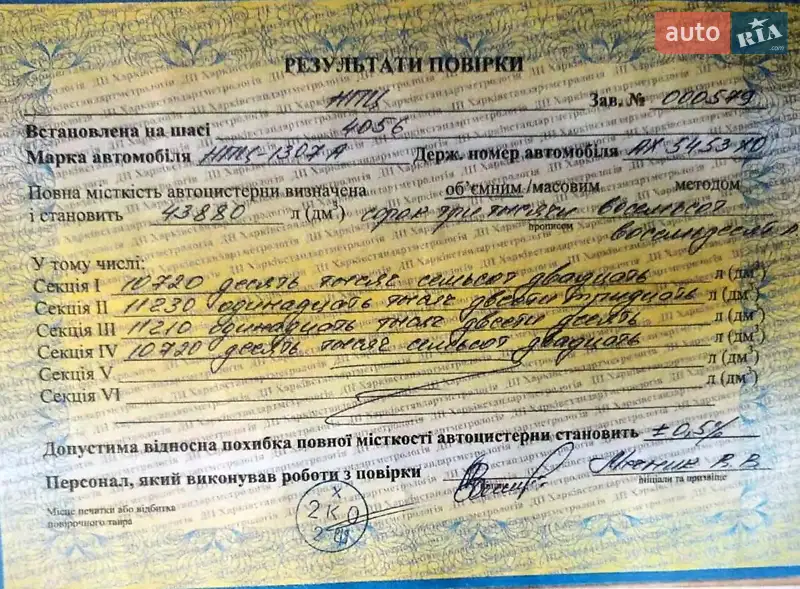 auto RIA .com
РЕЗУЛЬТАТИ ПОВІРКИ
НПЦ Зав. № 000579
Встановлена на шасі 4056
Марка автомобіля НПЦ-1307А Держ. номер автомобіля АХ 5453 ХО
Повна місткість автоцистерни визначена об’ємним /масовим методом
і становить 43880 л (дм³) сорок три тысячи восемьсот
прописом
восемьдесят
У тому числі:
Секція I 10720 десять тысяч семьсот двадцать л (дм³)
Секція II 11230 одинадцать тысяч двести тридцать л (дм³)
Секція III 11210 одинадцать тысяч двести десять л (дм³)
Секція IV 10720 десять тысяч семьсот двадцать л (дм³)
Секція V л (дм³)
Секція VI л (дм³)
Допустима відносна похибка повної місткості автоцистерни становить ±0,5%
Персонал, який виконував роботи з повірки В. В.
ініціали та прізвище
Місце печатки або відбитка
повірочного тавра